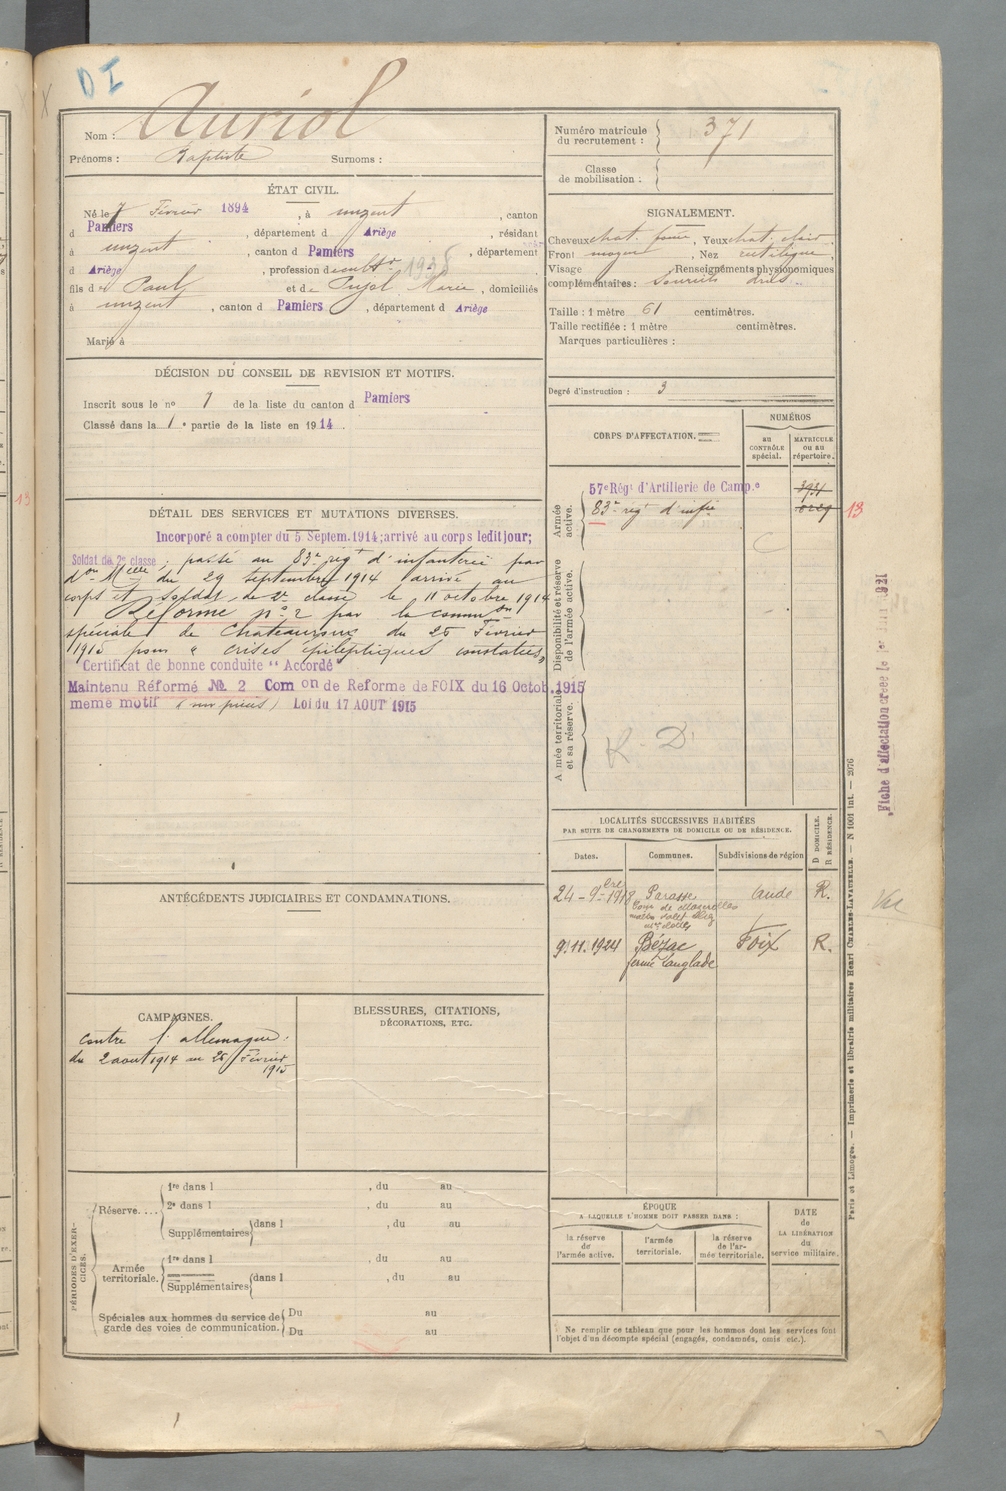 D I
Nom : Auriol
Prénoms : Baptiste Surnoms :
Numéro matricule du recrutement : 371
Classe de mobilisation :
ÉTAT CIVIL.
Né le 7 Février 1894, à unzent, canton
d Pamiers, département d Ariège, résidant
à unzent, canton d Pamiers, département
d Ariège, profession de cultr 1938
fils de Paul et de Pujol Marie, domiciliés
à unzent, canton d Pamiers, département d Ariège
Marié à
SIGNALEMENT.
Cheveux chat. foncé, Yeux chat. clair
Front moyen, Nez rectiligne,
Visage Renseignements physionomiques
complémentaires : Sourcils
Taille : 1 mètre 61 centimètres.
Taille rectifiée : 1 mètre centimètres.
Marques particulières :
Degré d'instruction : 3
DÉCISION DU CONSEIL DE REVISION ET MOTIFS.
Inscrit sous le no 7 de la liste du canton d Pamiers
Classé dans la 1e partie de la liste en 1914.
DÉTAIL DES SERVICES ET MUTATIONS DIVERSES.
Incorporé a compter du 5 Septem. 1914; arrivé au corps ledit jour;
Soldat de 2e classe; passé au 83e régt d'infanterie par
don Melle du 29 septembre 1914 arrivé au
corps et soldat de 2e classe le 11 octobre 1914
Réformé no 2 par la common
spéciale de Chateauroux du 25 Février
1915 pour "crises épileptiques constatées"
Certificat de bonne conduite "Accordé
Maintenu Réformé No. 2 Com on de Reforme de FOIX du 16 Octob. 1915
meme motif (sur pièces) Loi du 17 AOUT 1915
CORPS D'AFFECTATION.
NUMÉROS
au CONTRÔLE spécial.
MATRICULE ou au répertoire.
Armée active.
57e Régt d'Artillerie de Camp.e
83e régt d'infie
13
Disponibilité et réserve de l'armée active.
A mée territoriale et sa réserve.
R. D.
Fiche d'affectation créée le 1er Juin 1921
LOCALITÉS SUCCESSIVES HABITÉES
PAR SUITE DE CHANGEMENTS DE DOMICILE OU DE RÉSIDENCE.
Dates. Communes. Subdivisions de région D DOMICILE. R RÉSIDENCE.
24-9bre-1918 Parasse Aude R.
9.11.1924 Bézac Foix R.
ferme Langlade
ANTÉCÉDENTS JUDICIAIRES ET CONDAMNATIONS.
CAMPAGNES.
contre l'allemagne.
du 2 aout 1914 au 25 Février
1915
BLESSURES, CITATIONS,
DÉCORATIONS, ETC.
PÉRIODES D'EXERCICES.
Réserve....
1re dans l , du au
2e dans l , du au
Supplémentaires dans l , du au
Armée territoriale.
1re dans l , du au
Supplémentaires dans l , du au
Spéciales aux hommes du service de garde des voies de communication.
Du au
Du au
ÉPOQUE
A LAQUELLE L'HOMME DOIT PASSER DANS :
la réserve de l'armée active.
l'armée territoriale.
la réserve de l'armée territoriale.
DATE de LA LIBÉRATION du service militaire.
Ne remplir ce tableau que pour les hommes dont les services font
l'objet d'un décompte spécial (engagés, condamnés, omis etc.).
Paris et Limoges. — Imprimerie et librairie militaires Henri CHARLES-LAVAUZELLE. — N 1001 int. — 2076